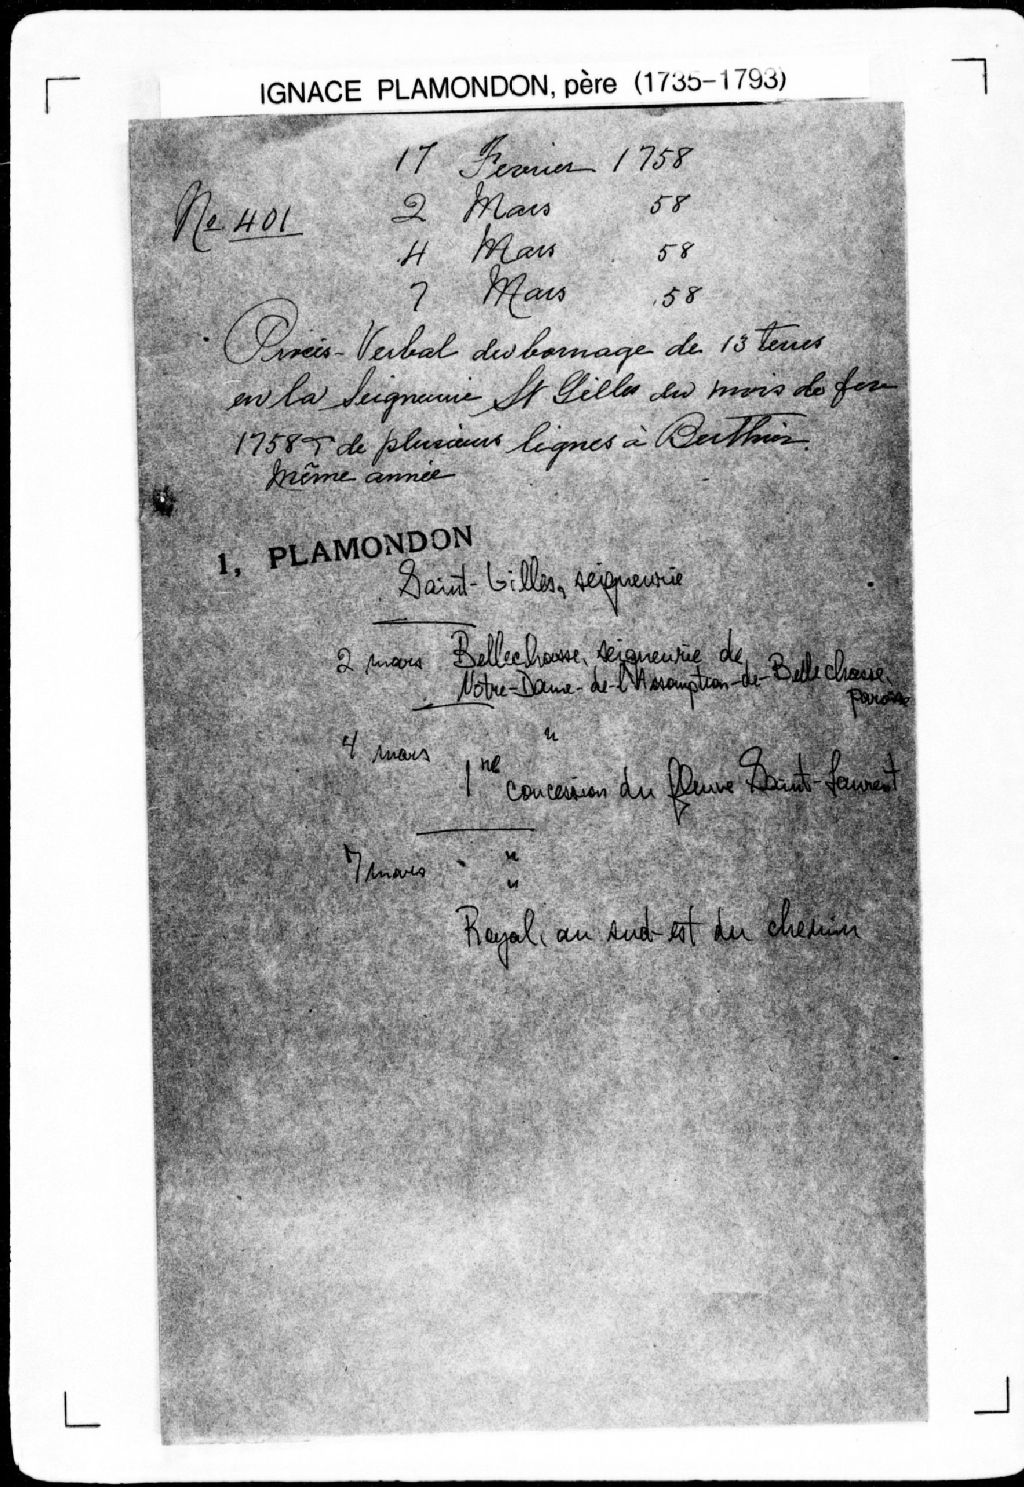 IGNACE PLAMONDON, père (1735-1793)
17 Fevrier 1758
No 401
2 Mars 58
4 Mars 58
7 Mars 58
Procès-Verbal du bornage de 13 terres
en la Seigneurie St Gilles du mois de fev
1758 & de plusieurs lignes à Berthier
Même année
1, PLAMONDON
Saint-Gilles, seigneurie
2 mars Bellechasse, seigneurie de
Notre-Dame-de-l'Assomption-de-Bellechasse,
paroisse
4 mars "
1re concession du fleuve Saint-Laurent
7 mars "
"
Royal, au sud-est du chemin